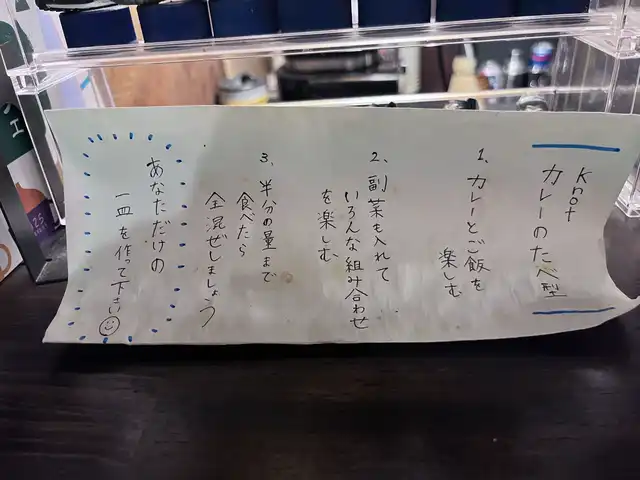 Knot
カレーのたべ型
1、カレーとご飯を
楽しむ
2、副菜も入れて
いろんな組み合わせ
を楽しむ
3、半分の量まで
食べたら
全混ぜしましょう
あなただけの
一皿を作って下さい